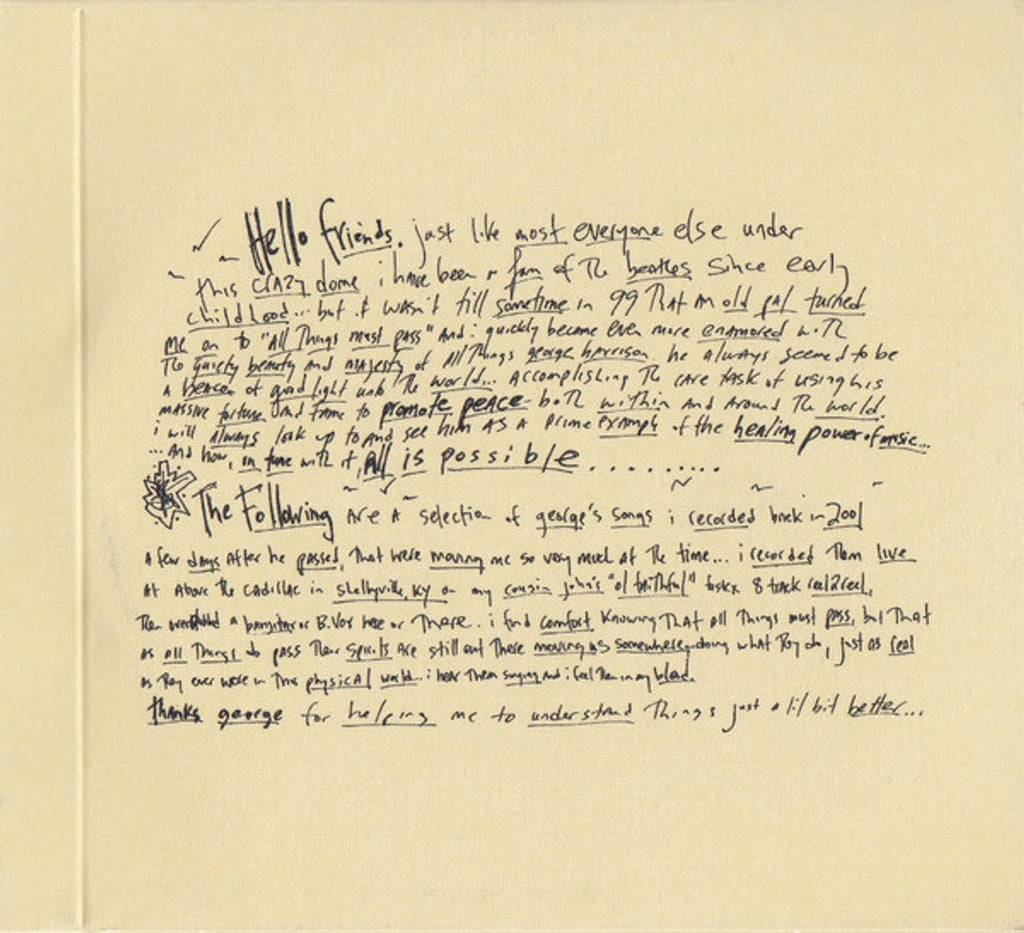 Hello friends. just like most everyone else under
this crazy dome i have been a fan of The beatles since early
childhood... but it wasn't till sometime in 99 That an old pal turned
me on to "All Things must pass" And i quickly became even more enamored with
The quiety beauty and majesty of All Things george harrison. he always seemed to be
A beacon of good light unto The world... Accomplishing The rare task of using his
massive fortune And fame to promote peace both within And Around The world.
i will always look up to And see him As A prime example of the healing power of music...
...And how, in tune with it, All is possible.........
The Following Are A selection of george's songs i recorded back in 2001
A few days After he passed, That were moving me so very much at The time... i recorded Them live
At Above The Cadillac in shelbyville, KY on my cousin john's "ol faithful" taskx 8 track reel2reel,
Then overdubbed a banjitar or B.Vox here or There. i find comfort Knowing That all Things must pass, but That
as all Things do pass Their spirits Are still out There moving us somewhere, doing what They do, just as real
as They ever were in This physical world... i hear Them singing and i feel Them in my blood.
thanks george for helping me to understand Things just a lil bit better...